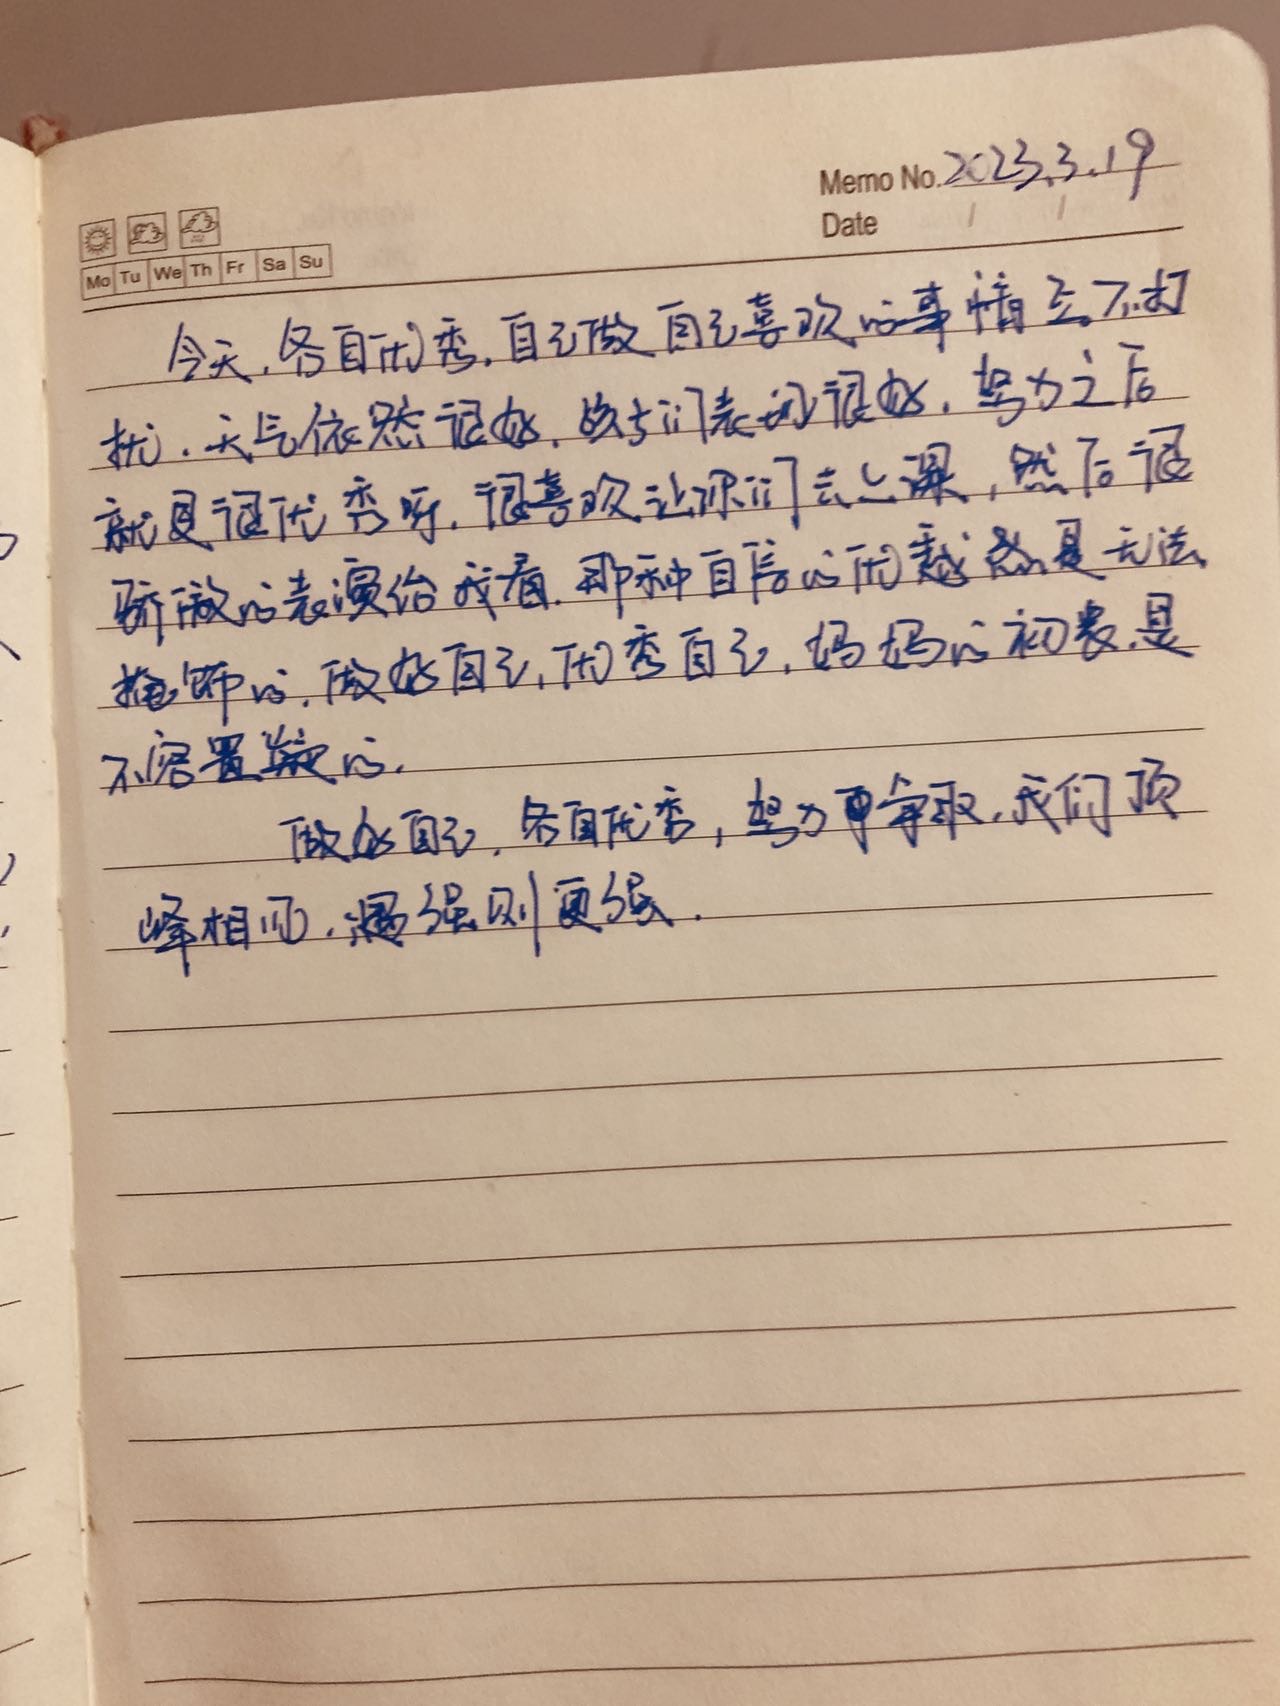 Memo No. 2023.3.19
Date / /
Mo Tu We Th Fr Sa Su
今天,各自优秀,自己做自己喜欢的事情互不打
扰.天气依然很好,你们表现很好,努力之后
就是很优秀呀,很喜欢让你们去上课,然后很
骄傲的表演给我看.那种自信的优越感是无法
掩饰的,做好自己,优秀自己,妈妈的初衷是
不容置疑的.
做好自己,各自优秀,努力争取.我们顶
峰相见.遇强则更强.